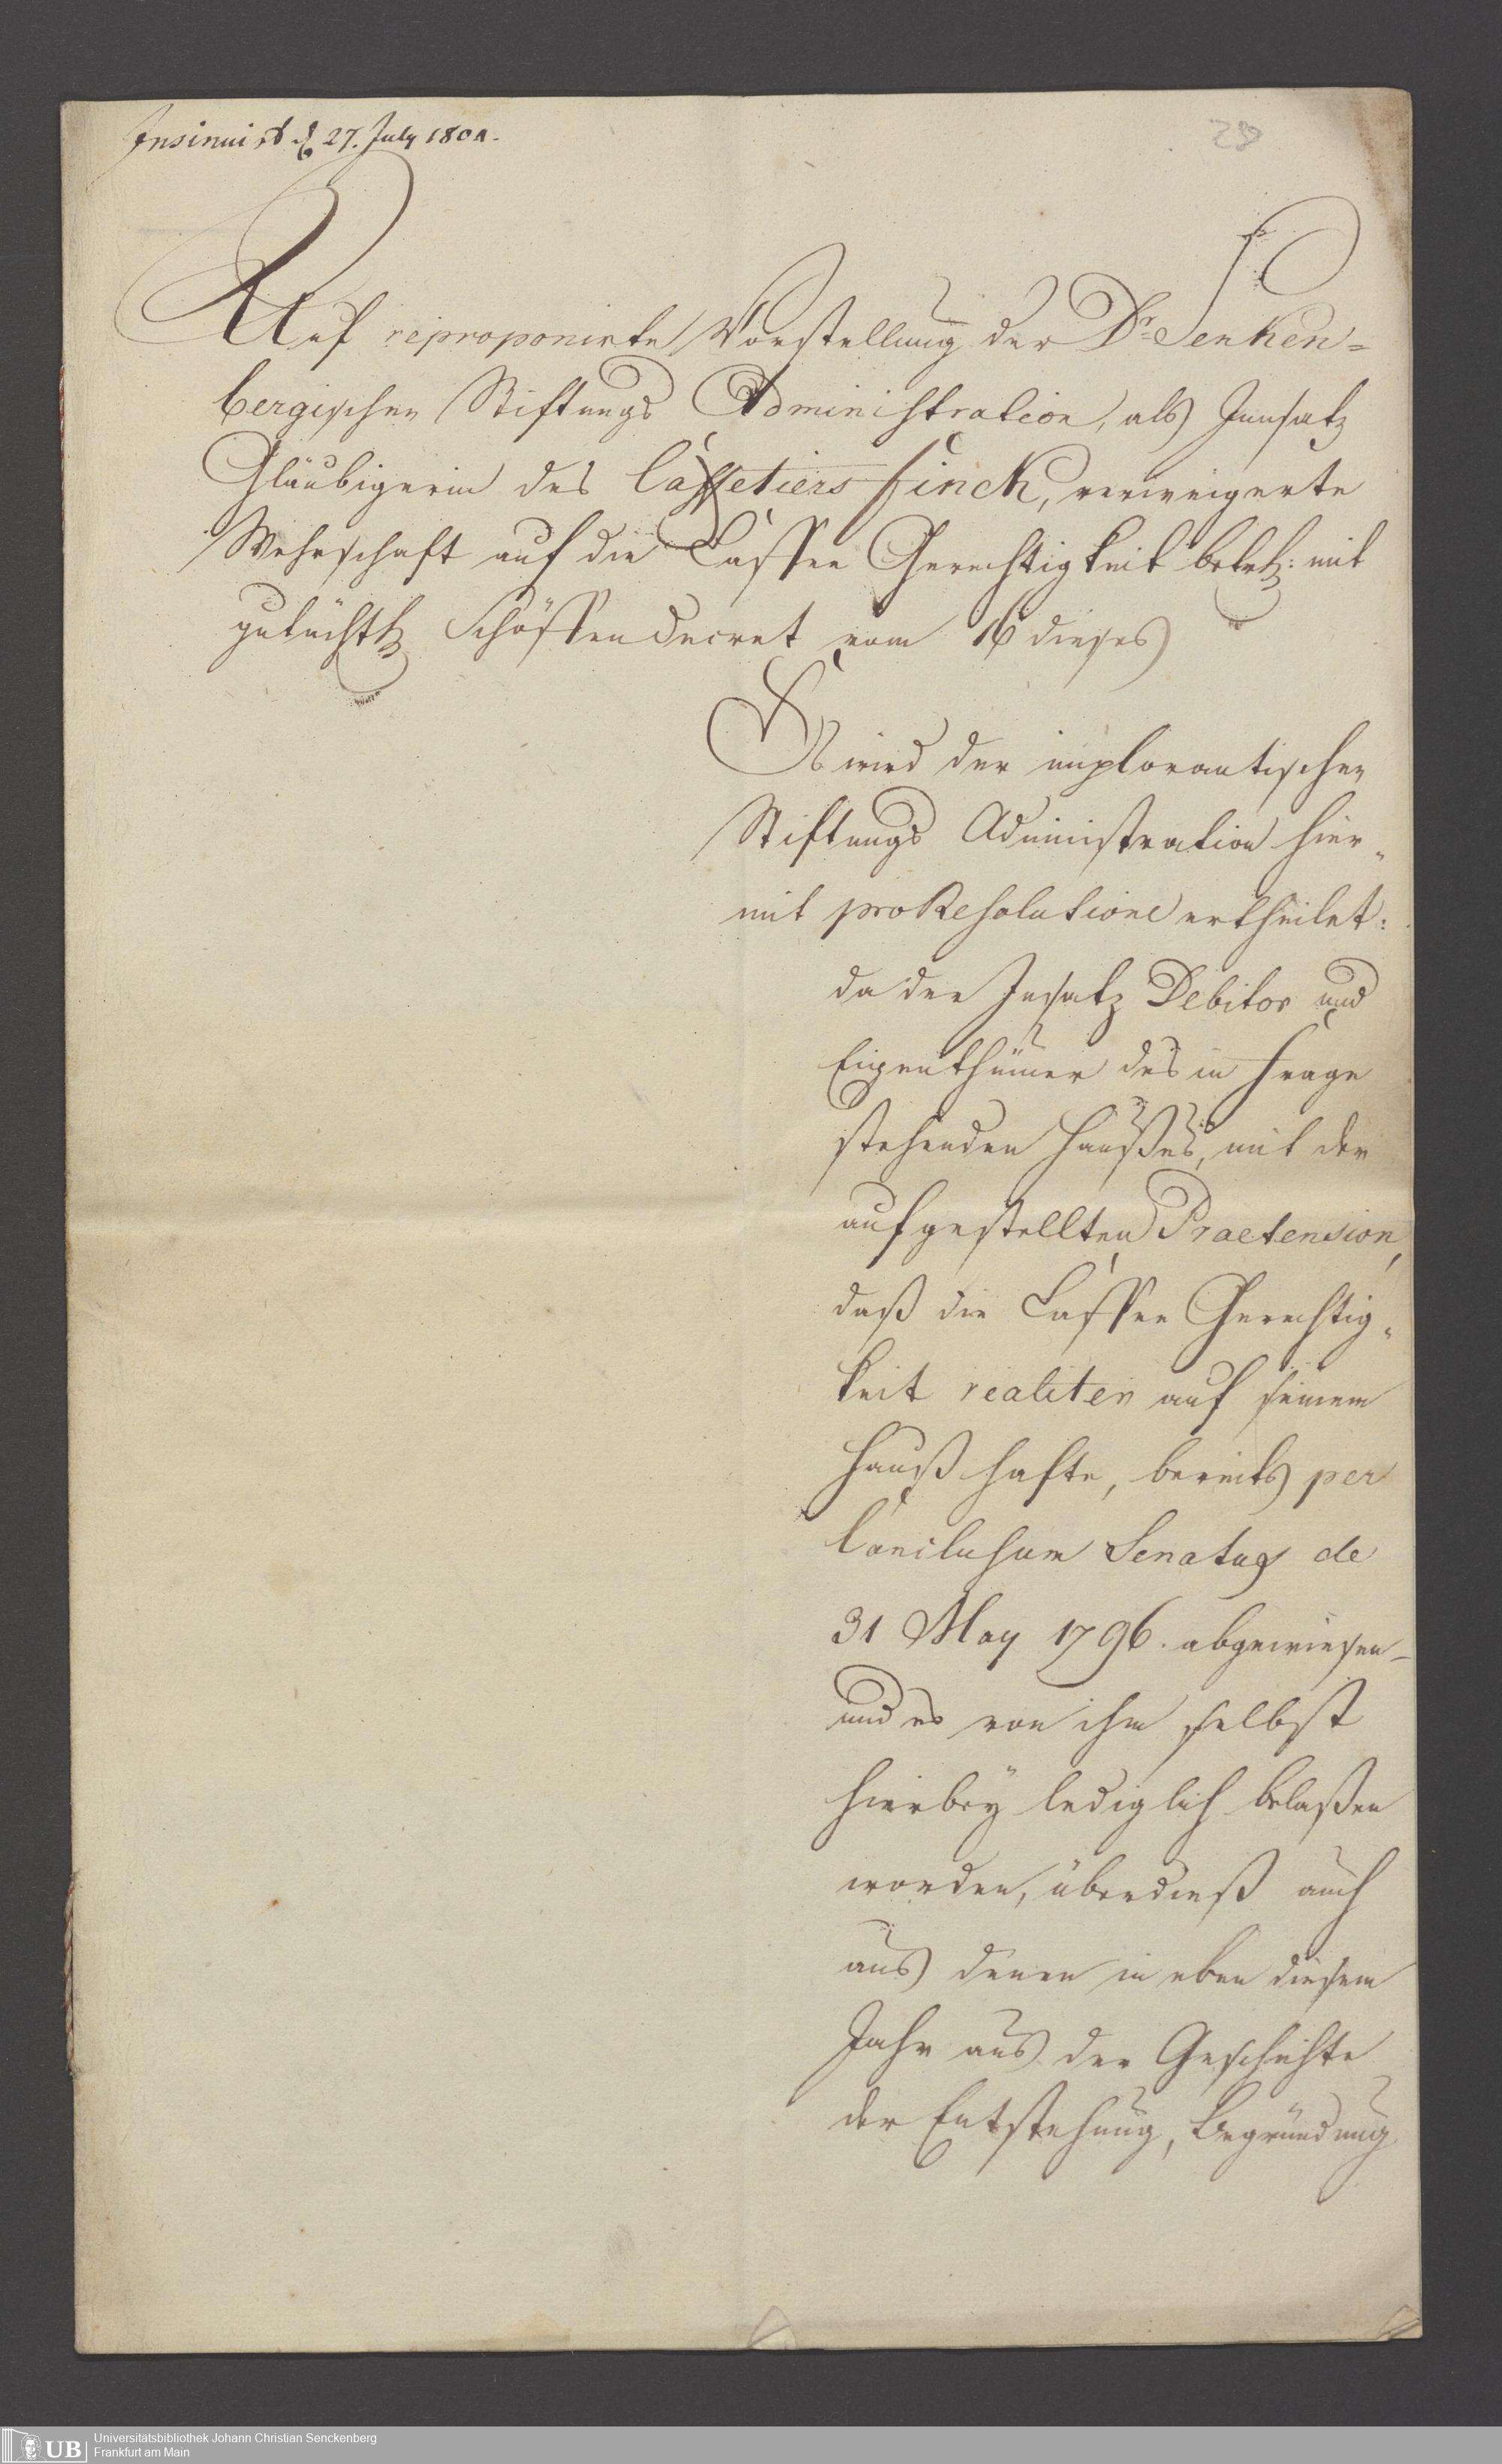 Insinuirt d. 27. July 1801.
29
Auf reproponirte Vorstellung der Dr. Senken=
bergischen Stiftungs Administration, als Innsatz
Gläubigerin des Caffetiers Finck, verweigerte
Wehrschaft auf die Caffee Gerechtigkeit betr: mit
Schöffendecret vom 16 dieses
Es wird der implorantischen
Stiftungs Administration hier„
mit pro Resolutione ertheilet:
da der Insatz Debitor und
Eigenthümer des in Frage
stehenden Haußes, mit der
aufgestellten Praetension,
daß die Caffee Gerechtig„
keit realiter auf seinem
Hauß hafte, bereits per
Conclusum Senatus de
31 May 1796. abgewiesen –
und es von ihm selbst
hierbey lediglich belaßen
worden, überdieß auch
aus denen in eben diesem
Jahr aus der Geschichte
der Entstehung, Begründung
UB
Universitätsbibliothek Johann Christian Senckenberg
Frankfurt am Main